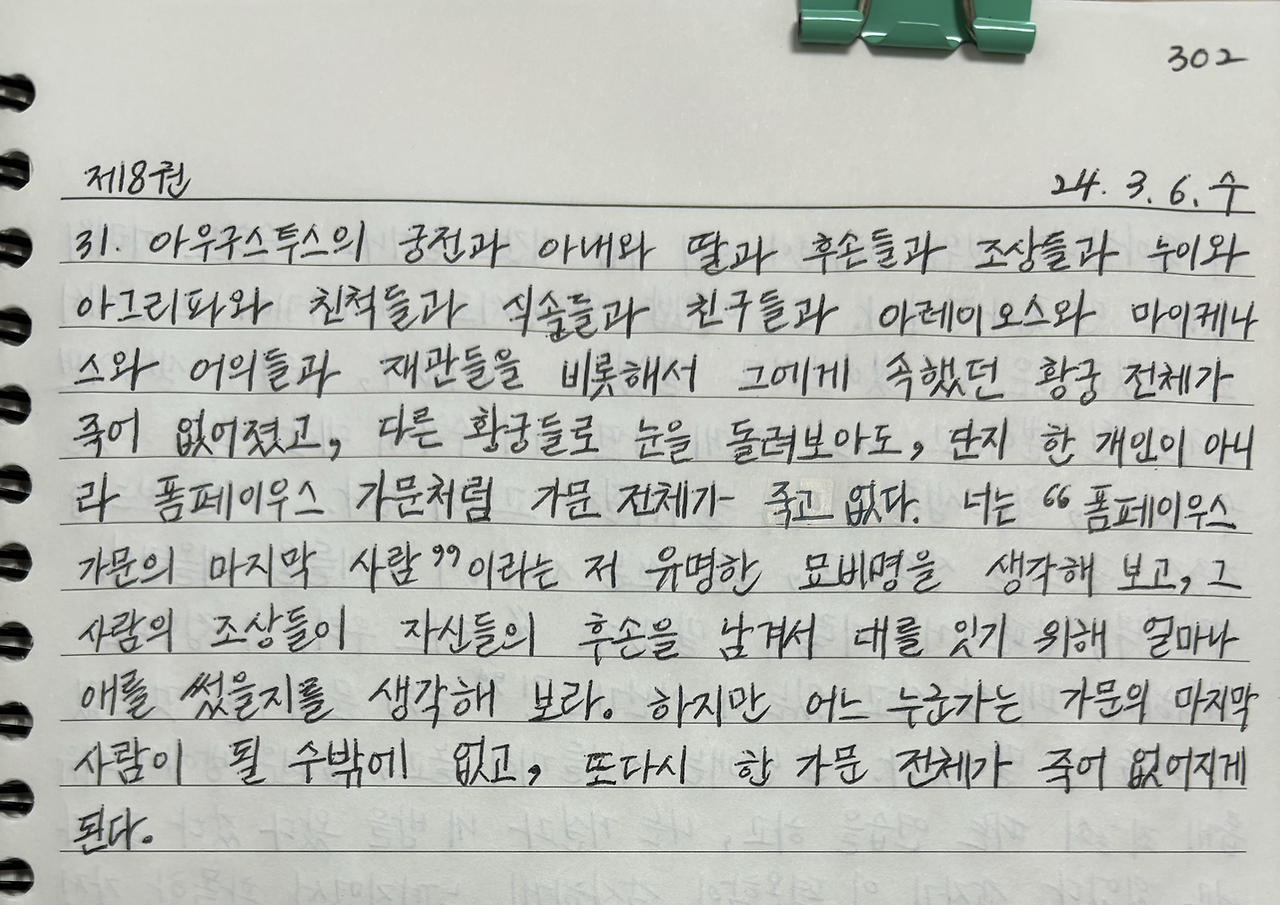 302
제18권 24. 3. 6. 수
31. 아우구스투스의 궁전과 아내와 딸과 후손들과 조상들과 누이와
아그리파와 친척들과 식솔들과 친구들과 아레이오스와 마이케나
스와 어의들과 재관들을 비롯해서 그에게 속했던 황궁 전체가
죽어 없어졌고, 다른 황궁들로 눈을 돌려보아도, 단지 한 개인이 아니
라 폼페이우스 가문처럼 가문 전체가 죽고 없다. 너는 “폼페이우스
가문의 마지막 사람”이라는 저 유명한 묘비명을 생각해 보고, 그
사람의 조상들이 자신들의 후손을 남겨서 대를 잇기 위해 얼마나
애를 썼을지를 생각해 보라. 하지만 어느 누군가는 가문의 마지막
사람이 될 수밖에 없고, 또다시 한 가문 전체가 죽어 없어지게
된다.